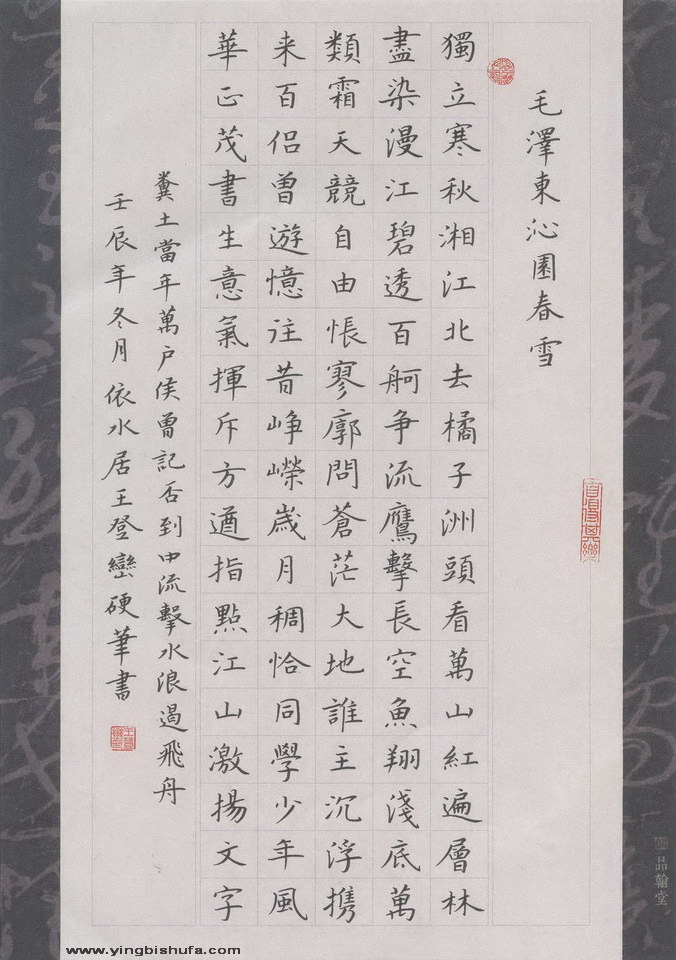 毛澤東沁園春雪
獨立寒秋湘江北去橘子洲頭看萬山紅遍層林
盡染漫江碧透百舸争流鷹擊長空魚翔淺底萬
類霜天競自由悵寥廓問蒼茫大地誰主沉浮携
来百侣曾遊憶往昔峥嶸歲月稠恰同學少年風
華正茂書生意氣揮斥方遒指點江山激揚文字
糞土當年萬户侯曾記否到中流擊水浪遏飛舟
壬辰年冬月依水居王登巒硬筆書
品翰堂
www.yingbishufa.com